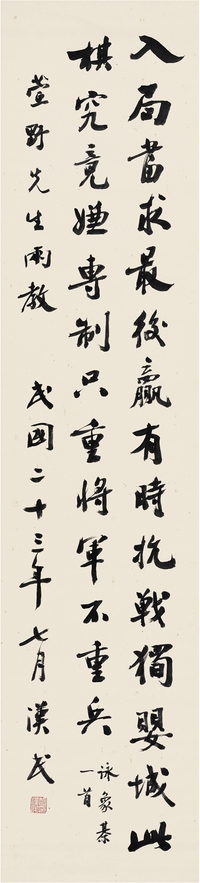 入局当求最後贏有時抗戰獨嬰城此
棋究竟嫌專制只重將軍不重兵
詠象棊
一首
萱野先生兩教 民國二十三年七月漢民